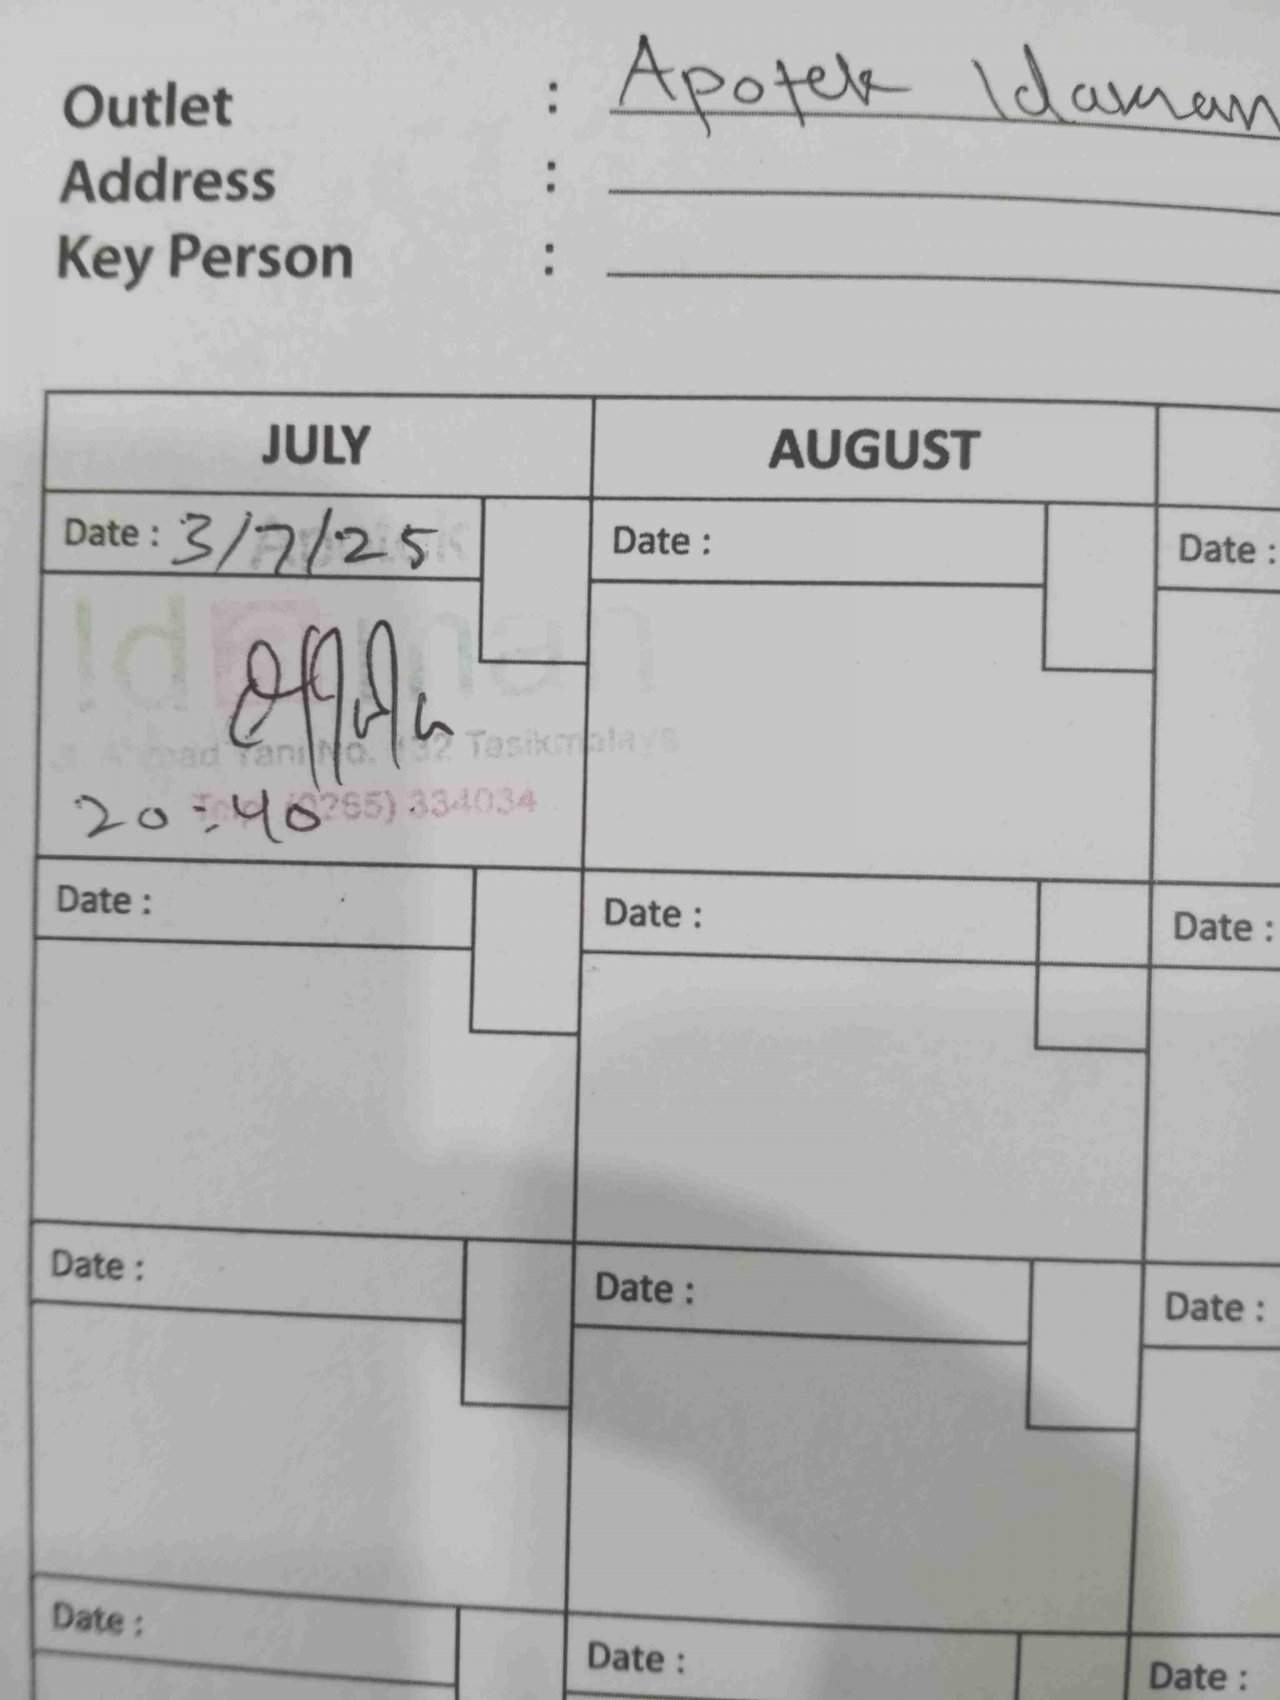 Outlet : Apotek Idaman
Address :
Key Person :
JULY AUGUST
Date : 3/7/25 Date : Date :
Apotek
Idaman
Jl. Ahmad Yani No. 132 Tasikmalaya
Telp. (0265) 334034
20:40
Date : Date : Date :
Date : Date : Date :
Date : Date : Date :